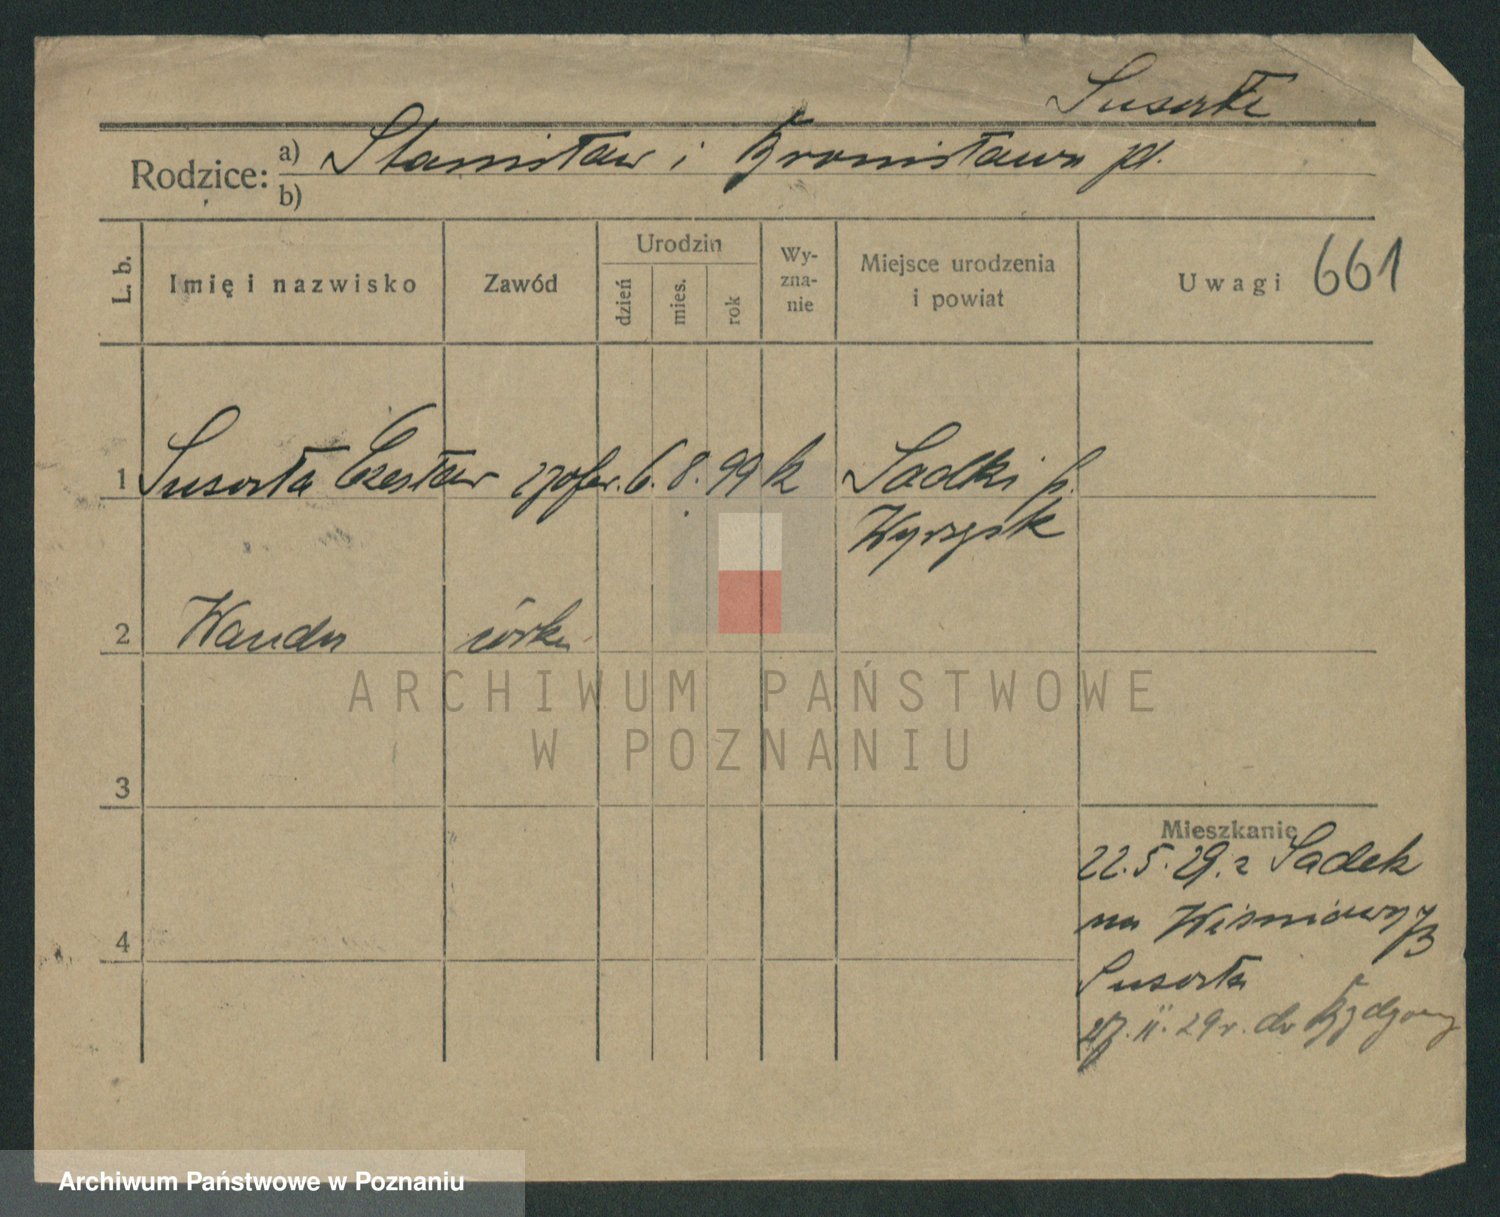 Susorke
Rodzice: a) Stanisław i Bronisława
b)
L. b.
Imię i nazwisko
Zawód
Urodzin
dzień
mies.
rok
Wy-
zna-
nie
Miejsce urodzenia
i powiat
Uwagi 661
1 Susorka Czesław 6. 8. 99 k Sadki p.
Wyrzysk
2 Wanda córka
3
Mieszkanie
22.5.29. z Sadek
na Wiśniowy
4
Susorka
II. 29 r. do Bydgoszcz
ARCHIWUM PAŃSTWOWE
W POZNANIU
Archiwum Państwowe w Poznaniu